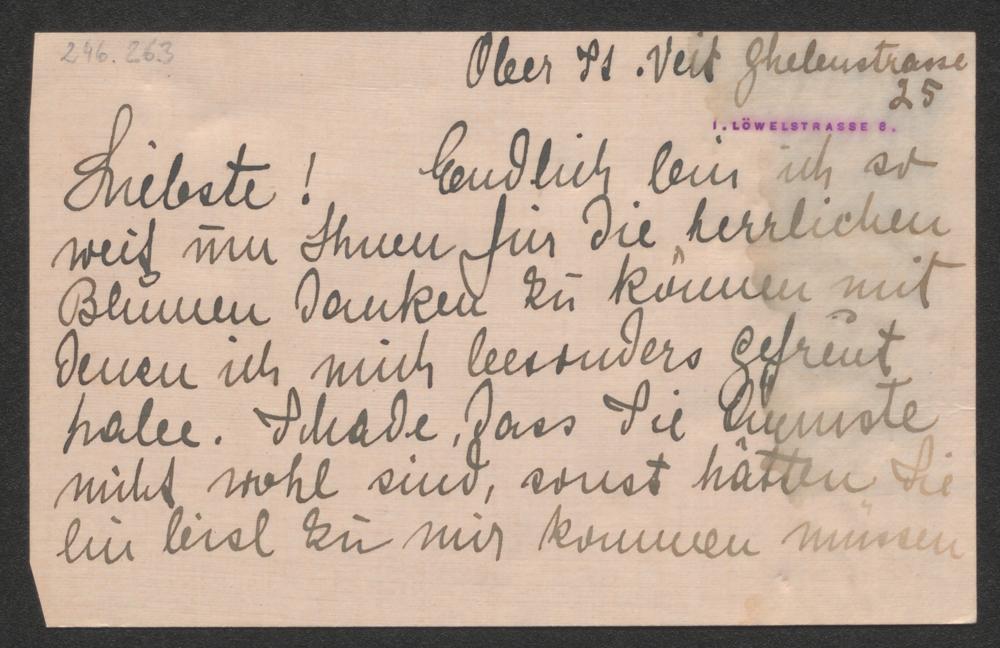 296.263
Ober St. Veit Ghelenstrasse
25
I. LÖWELSTRASSE 8.
Liebste! Endlich bin ich so
weit um Ihnen für die herrlichen
Blumen danken zu können mit
denen ich mich besonders gefreut
habe. Schade, dass Sie Ärmste
nicht wohl sind, sonst hätten Sie
ein bissl zu mir kommen müssen